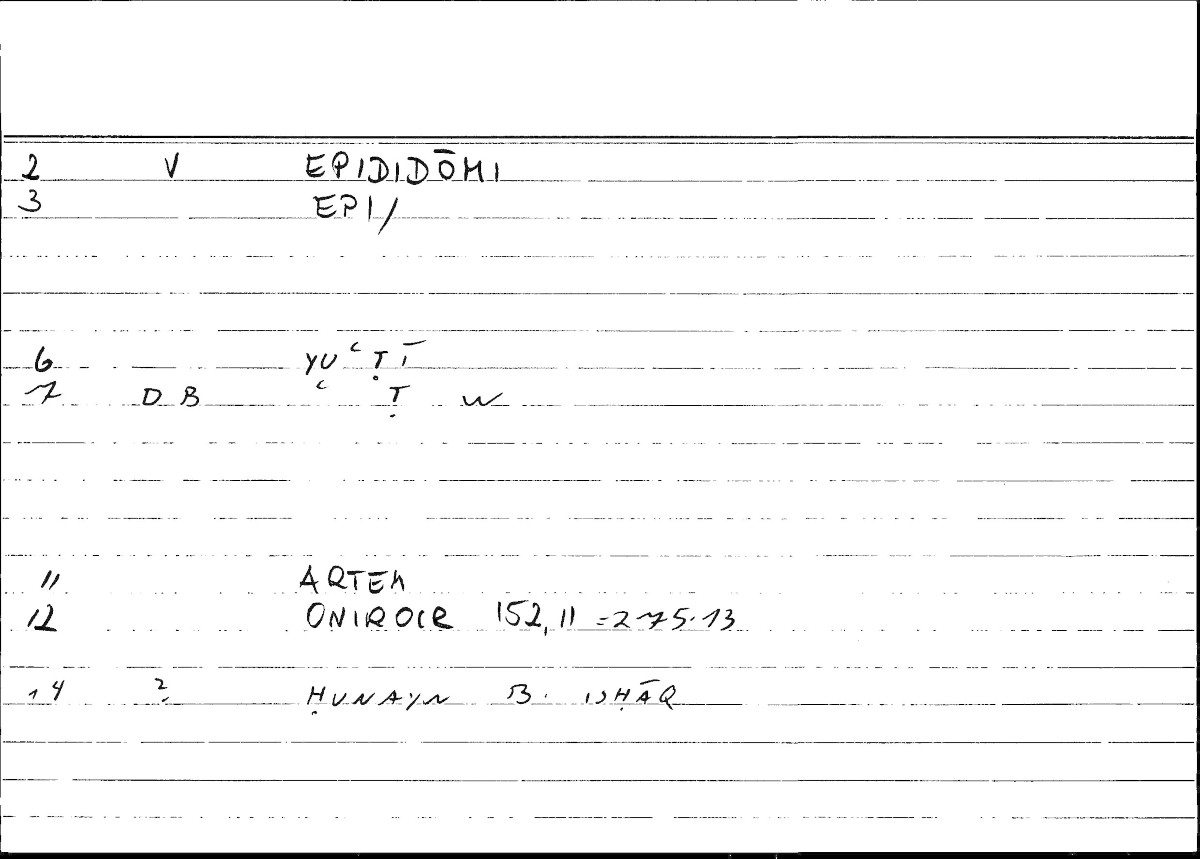 2 V EPIDIDŌMI
3 EPI/
6 YUʿṬĪ
7 DB ʿ Ṭ W
11 ARTEM
12 ONIROCR 152,11 =275.13
14 ? ḤUNAYN B. ISḤĀQ